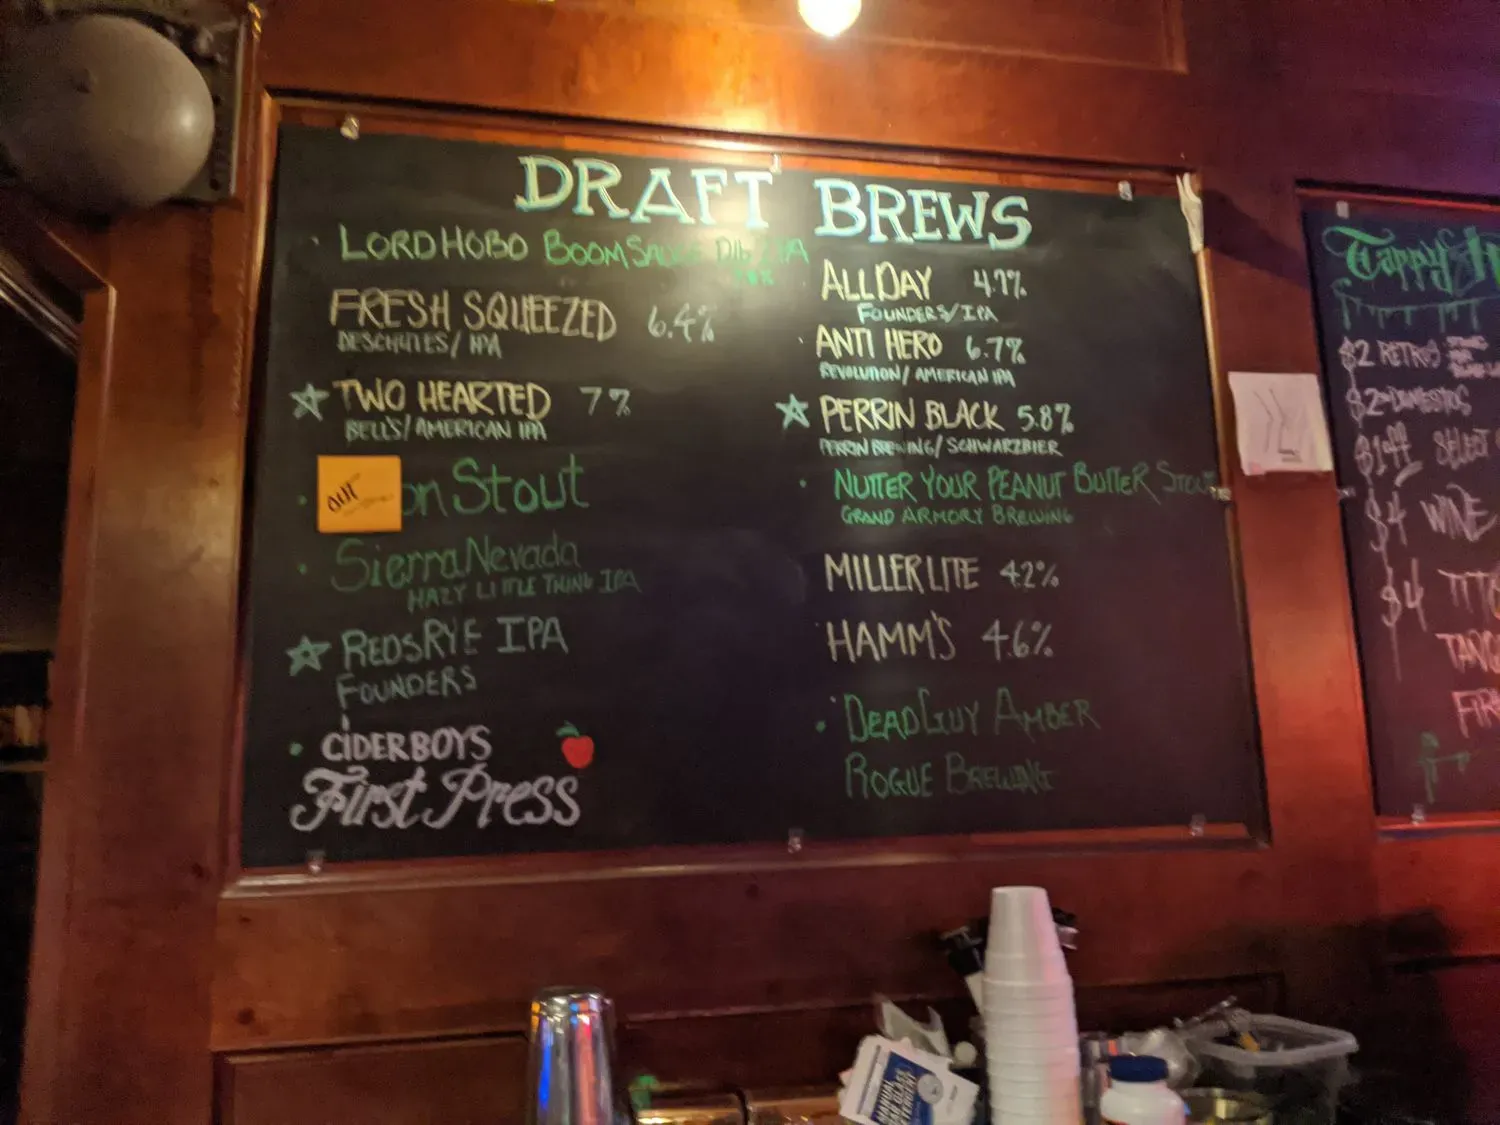 DRAFT BREWS
LORD HOBO BOOMSAUCE IPA
FRESH SQUEEZED 6.4%
DESCHUTES/ IPA
TWO HEARTED 7%
BELL'S/ AMERICAN IPA
OUT
on Stout
Sierra Nevada
HAZY LITTLE THING IPA
REDS RYE IPA
FOUNDERS
CIDERBOYS
First Press
ALL DAY 4.7%
FOUNDERS/ IPA
ANTI HERO 6.7%
REVOLUTION/ AMERICAN IPA
PERRIN BLACK 5.8%
PERRIN BREWING/ SCHWARZBIER
NUTTER YOUR PEANUT BUTTER STOUT
GRAND ARMORY BREWING
MILLER LITE 4.2%
HAMM'S 4.6%
DEAD GUY AMBER
ROGUE BREWING
Tappy H
$2 RETROS
$2 DOMESTICS
SELECT
$4 WINE
$4 TITO
TANG
FIR